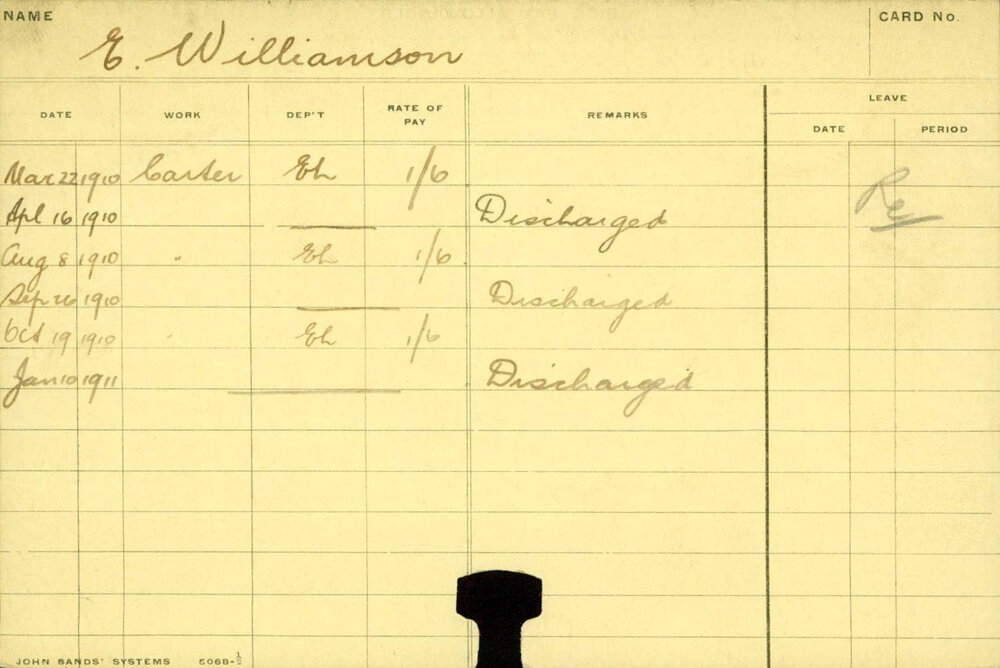 NAME
E. Williamson
CARD No.
DATE WORK DEP'T RATE OF PAY REMARKS LEAVE
DATE PERIOD
Mar 22 1910 Carter Eh 1/6
Apl 16 1910 Discharged
Aug 8 1910 " Eh 1/6
Sep 26 1910 Discharged
Oct 19 1910 " Eh 1/6
Jan 10 1911 Discharged
JOHN SANDS' SYSTEMS 5068-½